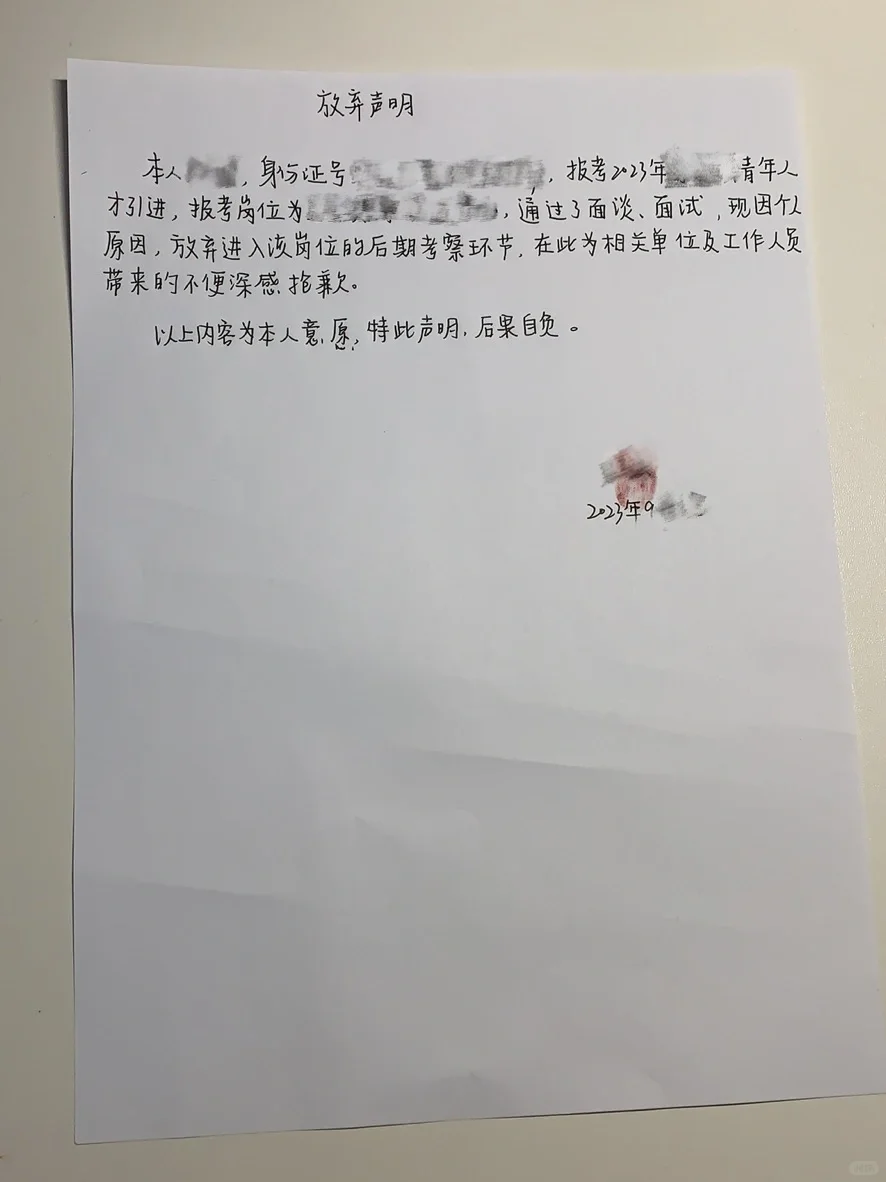 放弃声明
本人，身份证号，报考2023年青年人
才引进，报考岗位为，通过了面谈、面试，现因个人
原因，放弃进入该岗位的后期考察环节，在此为相关单位及工作人员
带来的不便深感抱歉。
以上内容为本人意愿，特此声明，后果自负。
2023年9